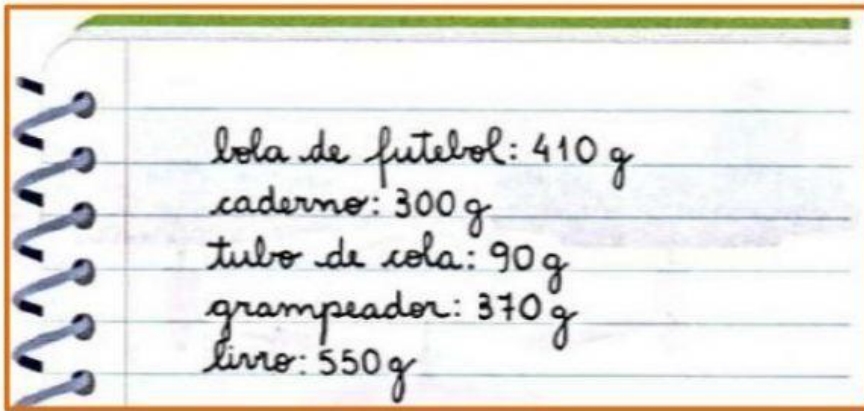 bola de futebol: 410 g
caderno: 300 g
tubo de cola: 90 g
grampeador: 370 g
livro: 550 g